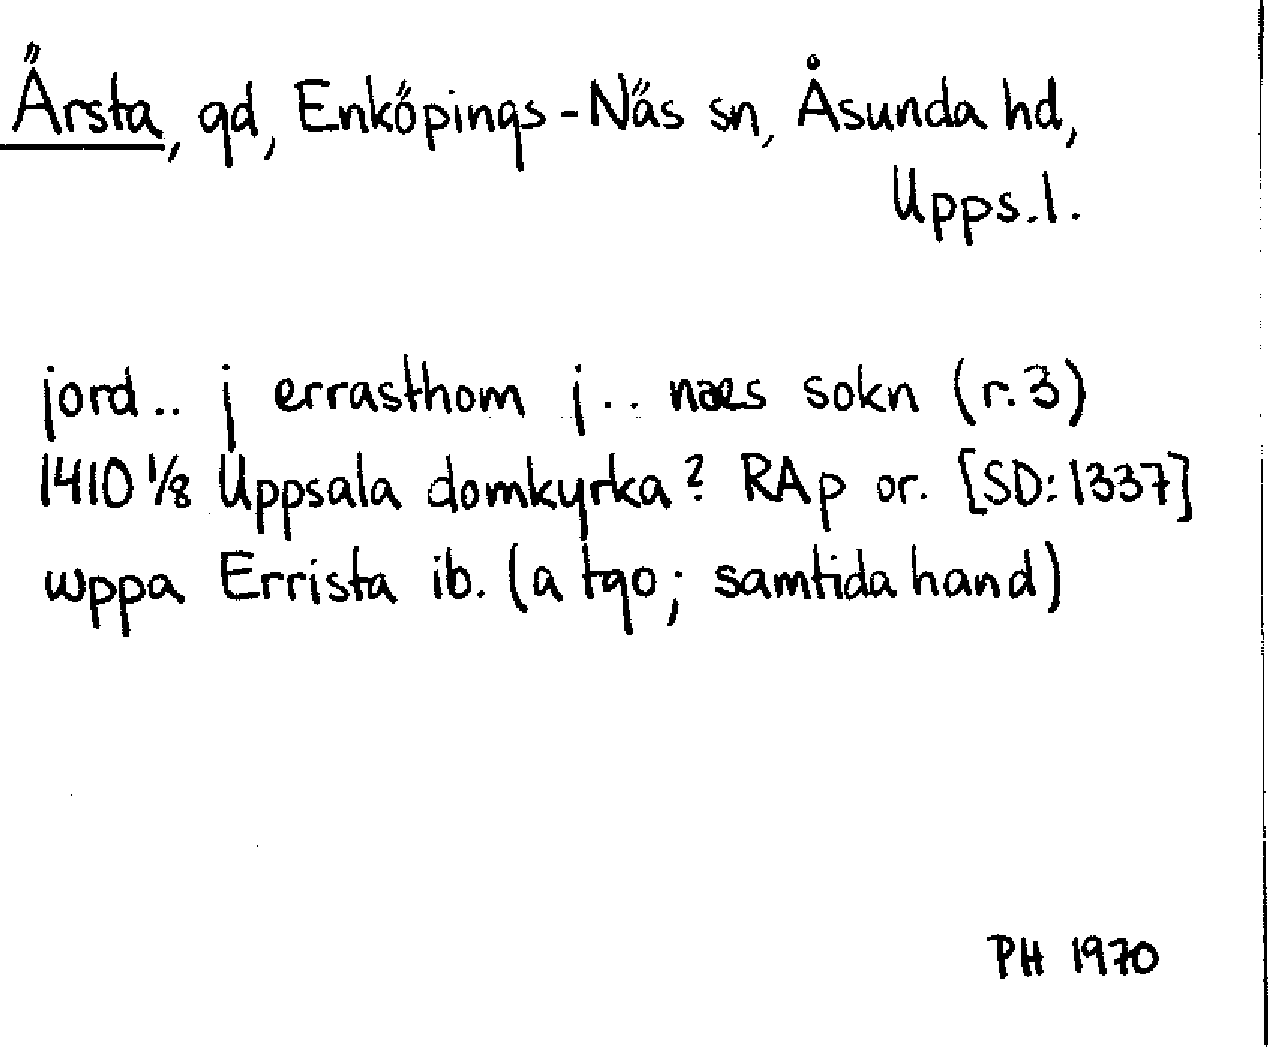 Ärsta, gd, Enköpings-Näs sn, Åsunda hd,
Upps.l.
jord.. j errasthom j.. naes sokn (r.3)
1410 1/8 Uppsala domkyrka? RAp or. [SD:1337]
wppa Errista ib. (a tgo; samtida hand)
PH 1970